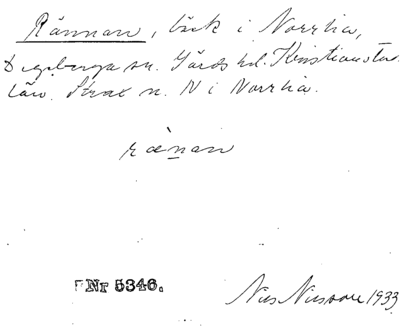 Rännan, bäck i Norrlia,
Degeberga sn. Gärds hd. Kristianstads
län. Strax n. N i Norrlia.
rænan
Nr 5346.
Nils Nilsson 1933